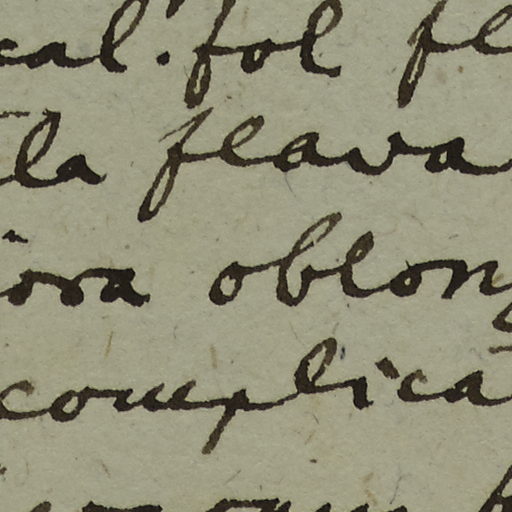 cal. fol fl
la flava
iora oblong
complica